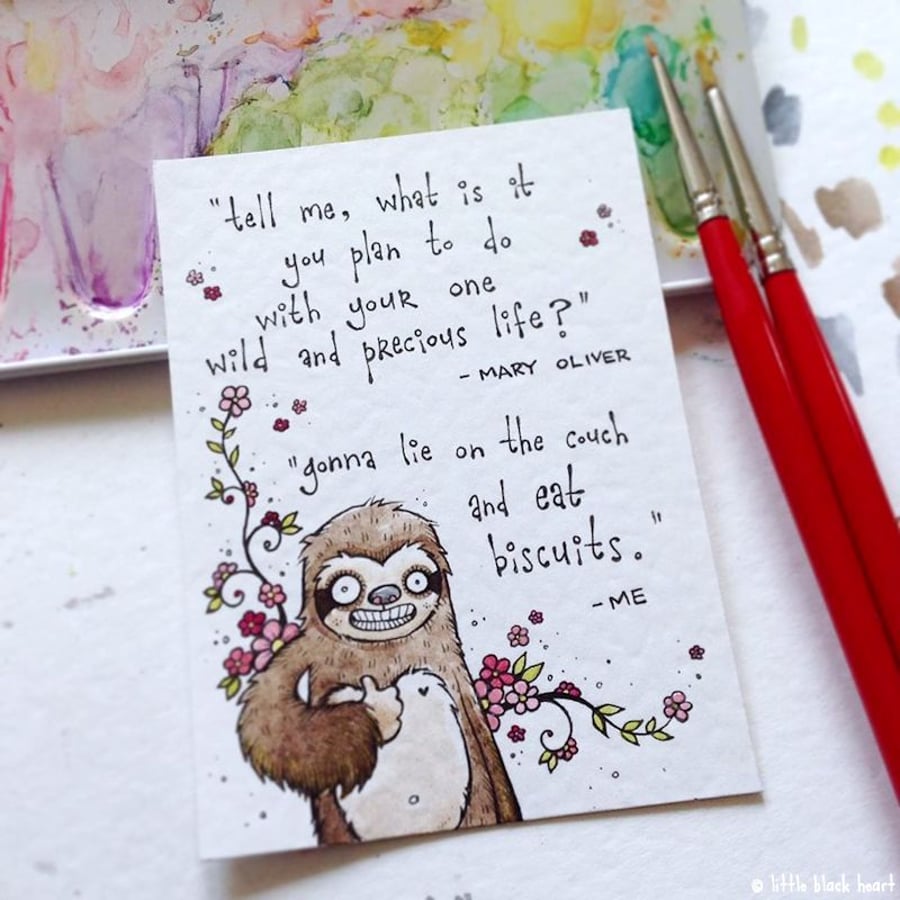 "tell me, what is it
you plan to do
with your one
wild and precious life?"
- MARY OLIVER
"gonna lie on the couch
and eat
biscuits."
- ME
© little black heart